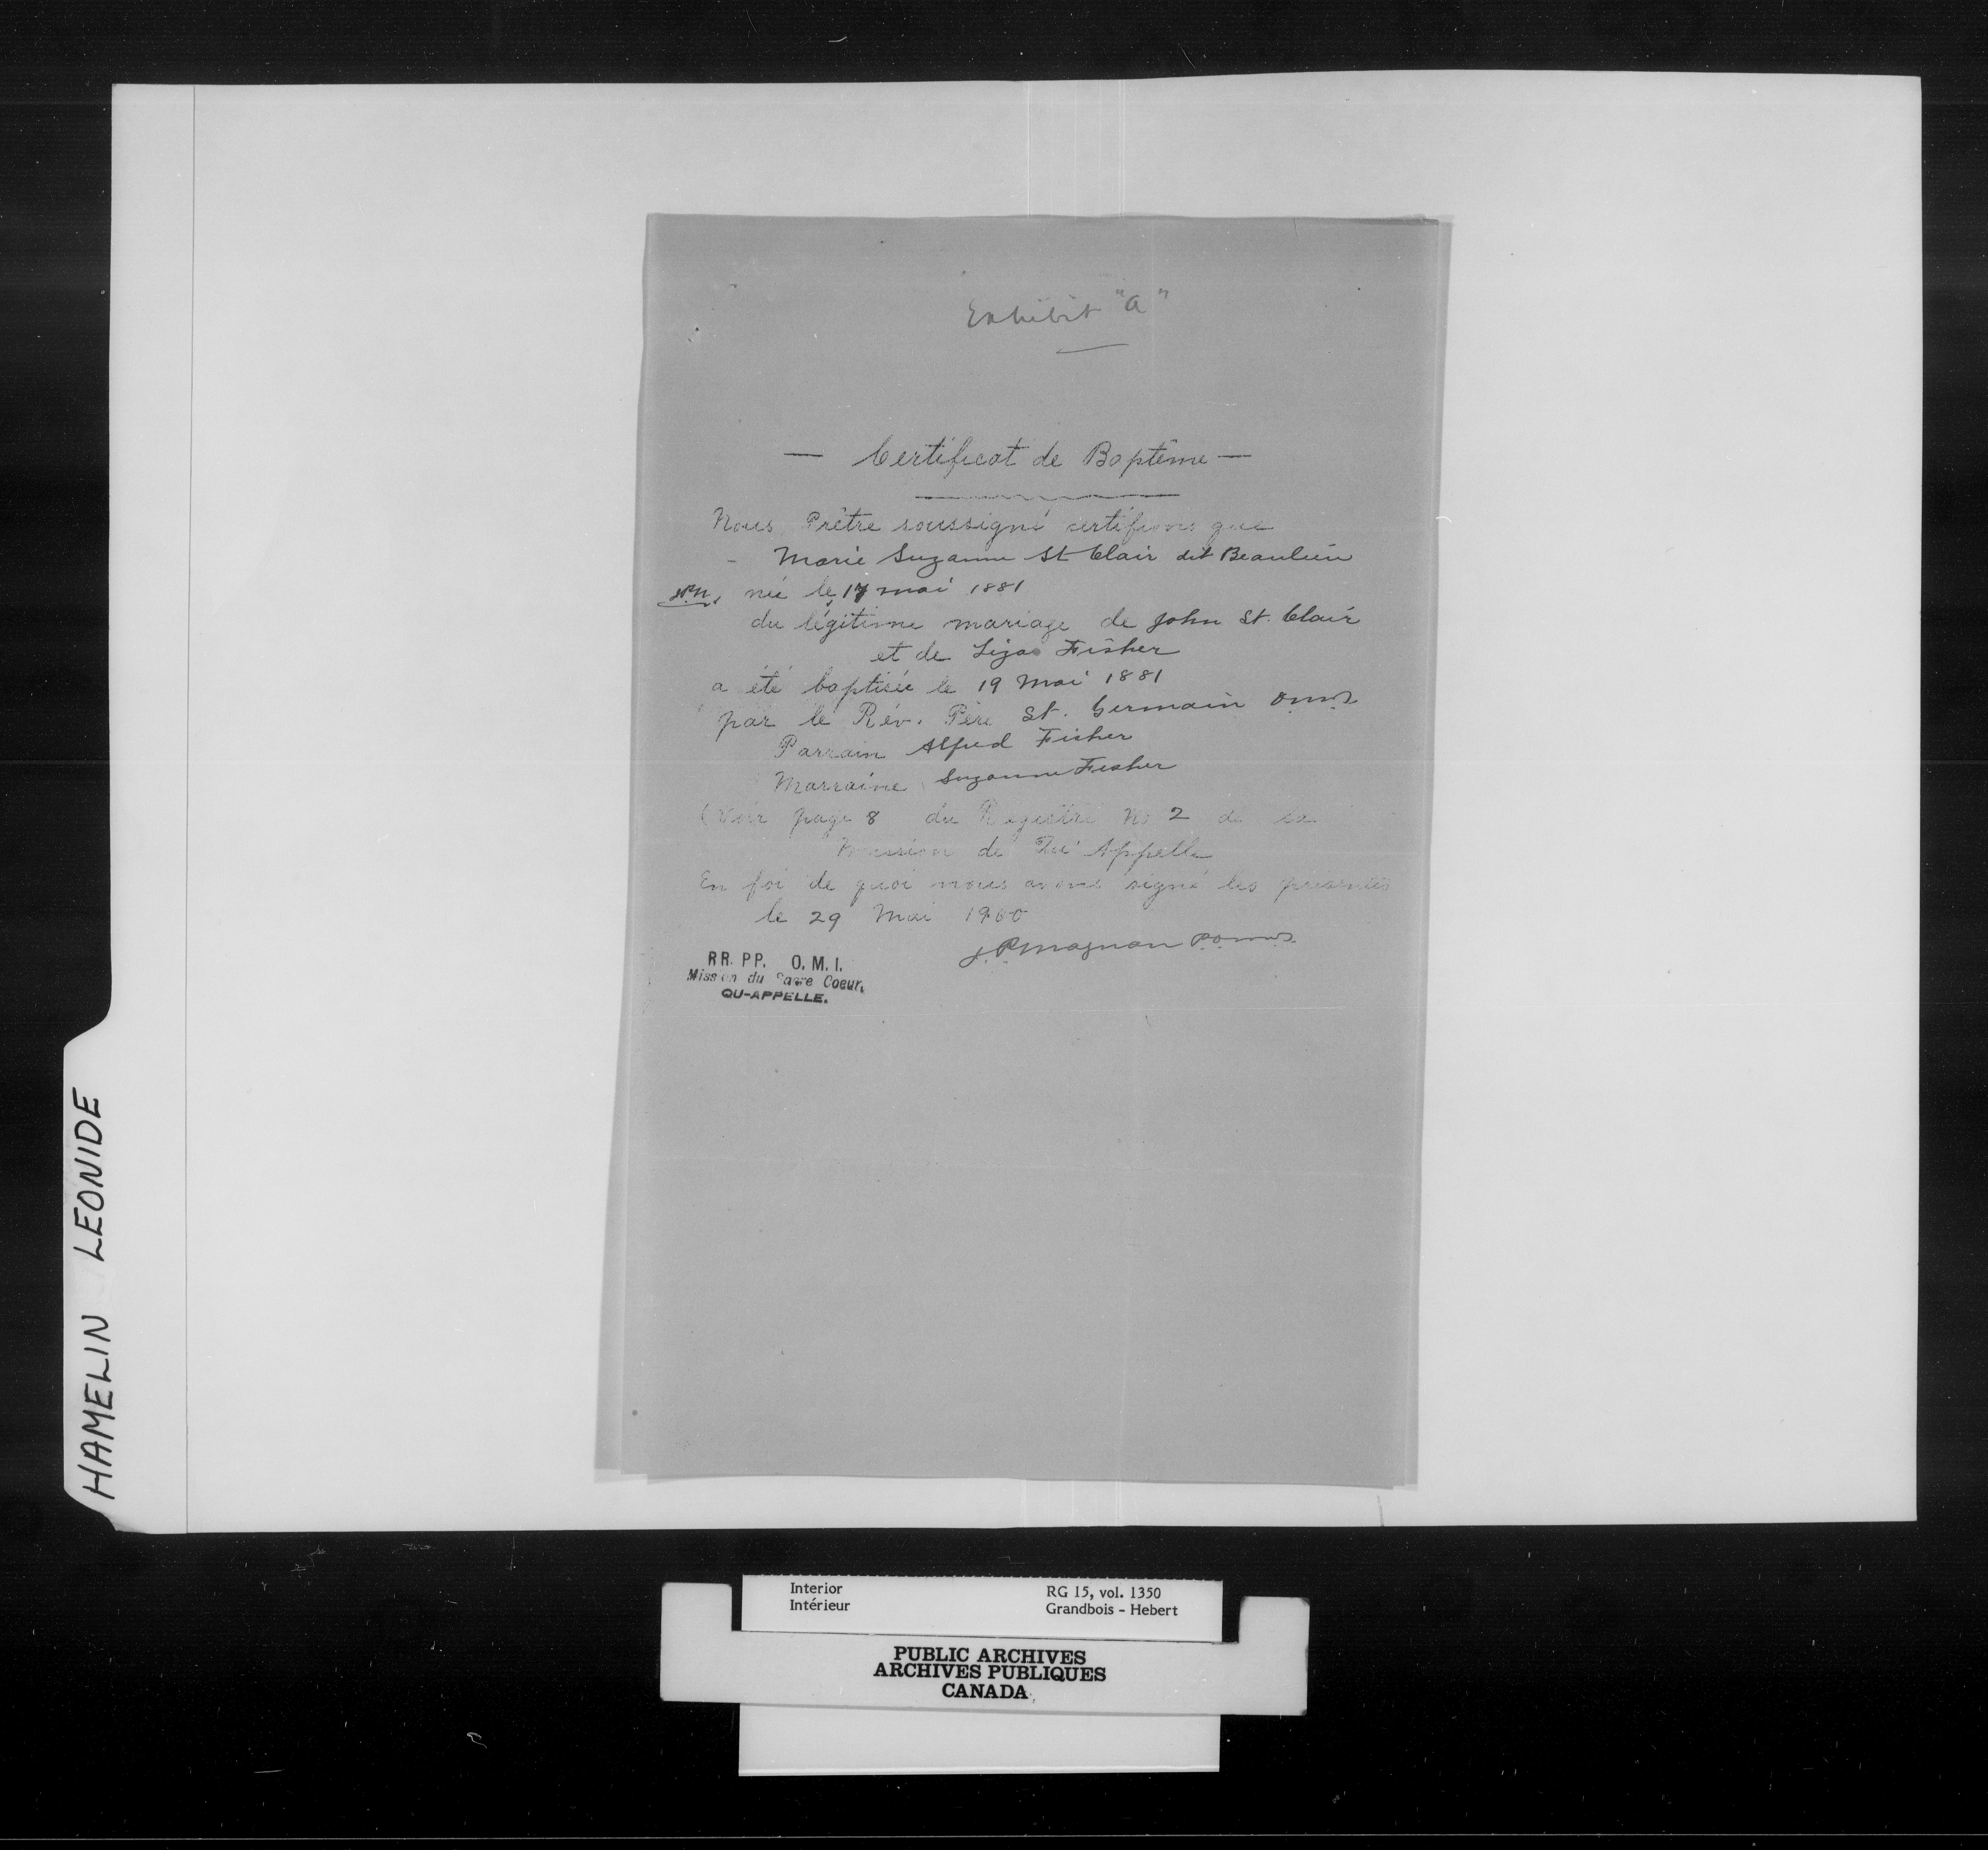 Exhibit "A"
— Certificat de Baptême —
Nous Prêtre soussigné certifions que
Marie Suzanne St Clair dit Beaulieu
née le 17 mai 1881
du légitime mariage de John St. Clair
et de Liza Fisher
a été baptisée le 19 Mai 1881
par le Rév. Père St. Germain O.M.I.
Parrain Alfred Fisher
Marraine Suzanne Fisher
(Voir page 8 du Registre No 2 de la
Mission de Qu'Appelle
En foi de quoi nous avons signé les présentes
le 29 Mai 1900
J.P. Magnan P.O.M.I.
RR. PP. O. M. I.
Mission du Sacre Coeur,
QU-APPELLE.
HAMELIN LEONIDE
Interior RG 15, vol. 1350
Intérieur Grandbois - Hebert
PUBLIC ARCHIVES
ARCHIVES PUBLIQUES
CANADA